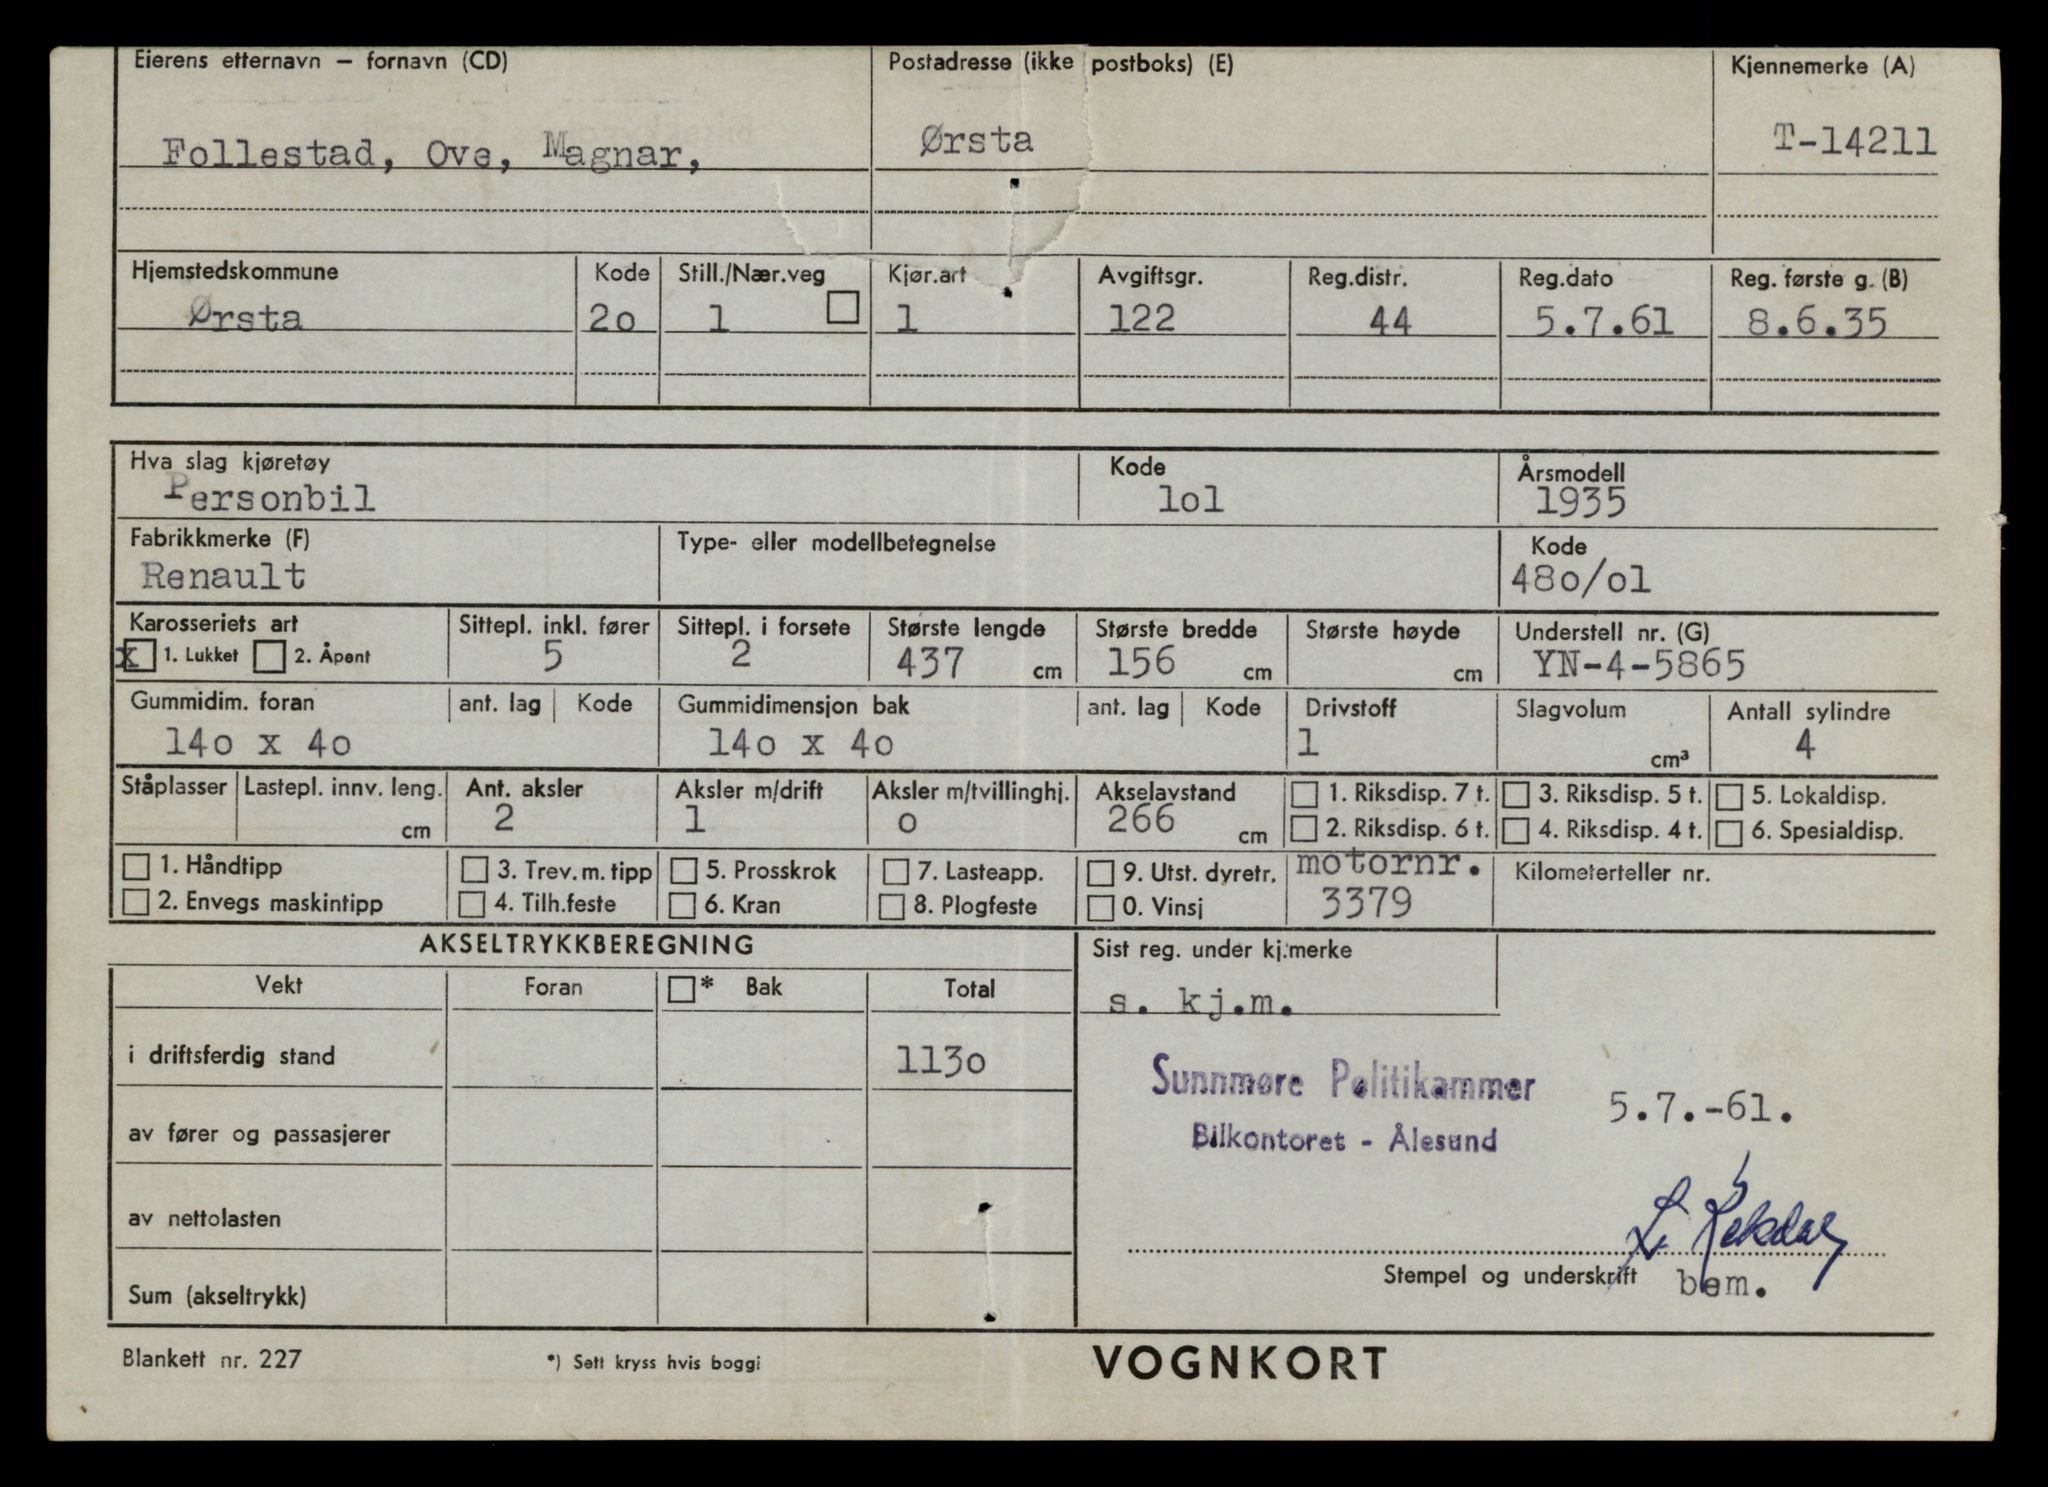 Eierens etternavn – fornavn (CD) Postadresse (ikke postboks) (E) Kjennemerke (A)
Follestad, Ove, Magnar, Ørsta T-14211
Hjemstedskommune Kode Still./Nær.veg Kjør.art Avgiftsgr. Reg.distr. Reg.dato Reg. første g. (B)
Ørsta 2o 1 1 122 44 5.7.61 8.6.35
Hva slag kjøretøy Kode Årsmodell
Personbil 1o1 1935
Fabrikkmerke (F) Type- eller modellbetegnelse Kode
Renault 48o/o1
Karosseriets art Sittepl. inkl. fører Sittepl. i forsete Største lengde Største bredde Største høyde Understell nr. (G)
x 1. Lukket 2. Åpent 5 2 437 cm 156 cm cm YN-4-5865
Gummidim. foran ant. lag Kode Gummidimensjon bak ant. lag Kode Drivstoff Slagvolum Antall sylindre
14o x 4o 14o x 4o 1 cm³ 4
Ståplasser Lastepl. innv. leng. Ant. aksler Aksler m/drift Aksler m/tvillinghj. Akselavstand 1. Riksdisp. 7 t. 3. Riksdisp. 5 t. 5. Lokaldisp.
cm 2 1 o 266 cm 2. Riksdisp. 6 t. 4. Riksdisp. 4 t. 6. Spesialdisp.
1. Håndtipp 3. Trev. m. tipp 5. Prosskrok 7. Lasteapp. 9. Utst. dyretr. motornr. Kilometerteller nr.
2. Envegs maskintipp 4. Tilh.feste 6. Kran 8. Plogfeste 0. Vinsj 3379
AKSELTRYKKBEREGNING Sist reg. under kj.merke
Vekt Foran * Bak Total s. kj.m.
i driftsferdig stand 113o
Sunnmøre Politikammer 5.7.-61.
av fører og passasjerer Bilkontoret - Ålesund
av nettolasten L. Rekdal
Stempel og underskrift bem.
Sum (akseltrykk)
Blankett nr. 227 *) Sett kryss hvis boggi VOGNKORT